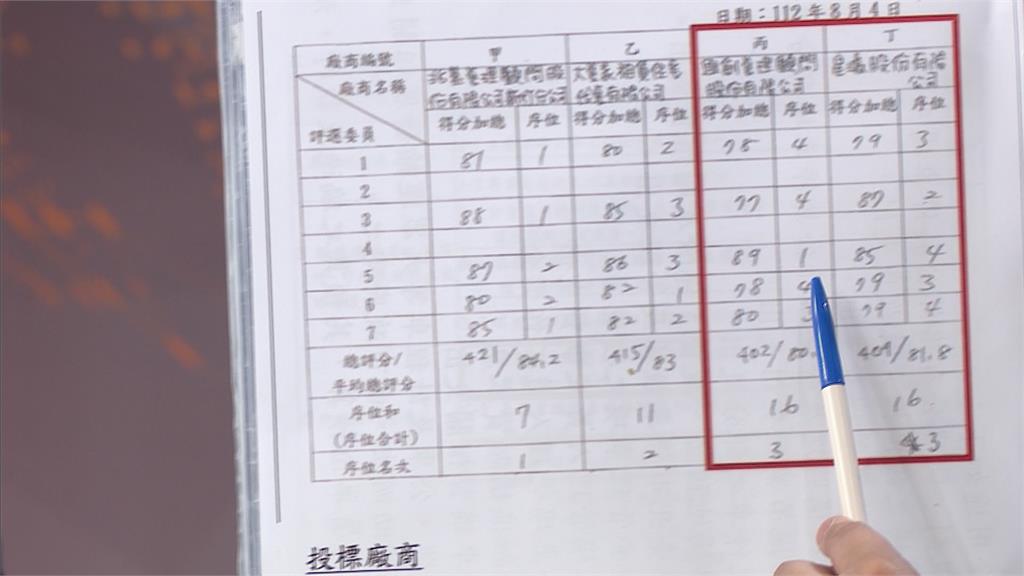 日期：112年8月4日
廠商編號 甲 乙 丙 丁
廠商名稱
份有限公司 有限公司 股份有限公司 股份有限公司
評選委員 得分加總 序位 得分加總 序位 得分加總 序位 得分加總 序位
1 87 1 80 2 78 4 79 3
2
3 88 1 85 3 77 4 87 2
4
5 87 2 86 3 89 1 85 4
6 80 2 82 1 78 4 79 3
7 85 1 82 2 80 79 4
總評分/平均總評分 421/84.2 415/83 402/80. 409/81.8
序位和(序位合計) 7 11 16 16
序位名次 1 2 3 3
投標廠商